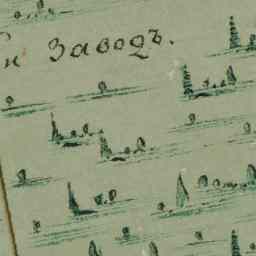 Заводъ.